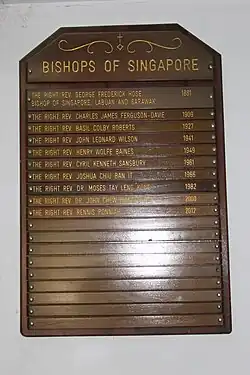 BISHOPS OF SINGAPORE
THE RIGHT REV. GEORGE FREDERICK HOSE 1881
BISHOP OF SINGAPORE, LABUAN AND SARAWAK
THE RIGHT REV. CHARLES JAMES FERGUSON-DAVIE 1909
THE RIGHT REV. BASIL COLBY ROBERTS 1927
THE RIGHT REV. JOHN LEONARD WILSON 1941
THE RIGHT REV. HENRY WOLFE BAINES 1949
THE RIGHT REV. CYRIL KENNETH SANSBURY 1961
THE RIGHT REV. JOSHUA CHIU BAN IT 1966
THE RIGHT REV. DR. MOSES TAY LENG 1982
THE RIGHT REV. DR. JOHN CHEW 2000
THE RIGHT REV. RENNIS PONNIAH 2012